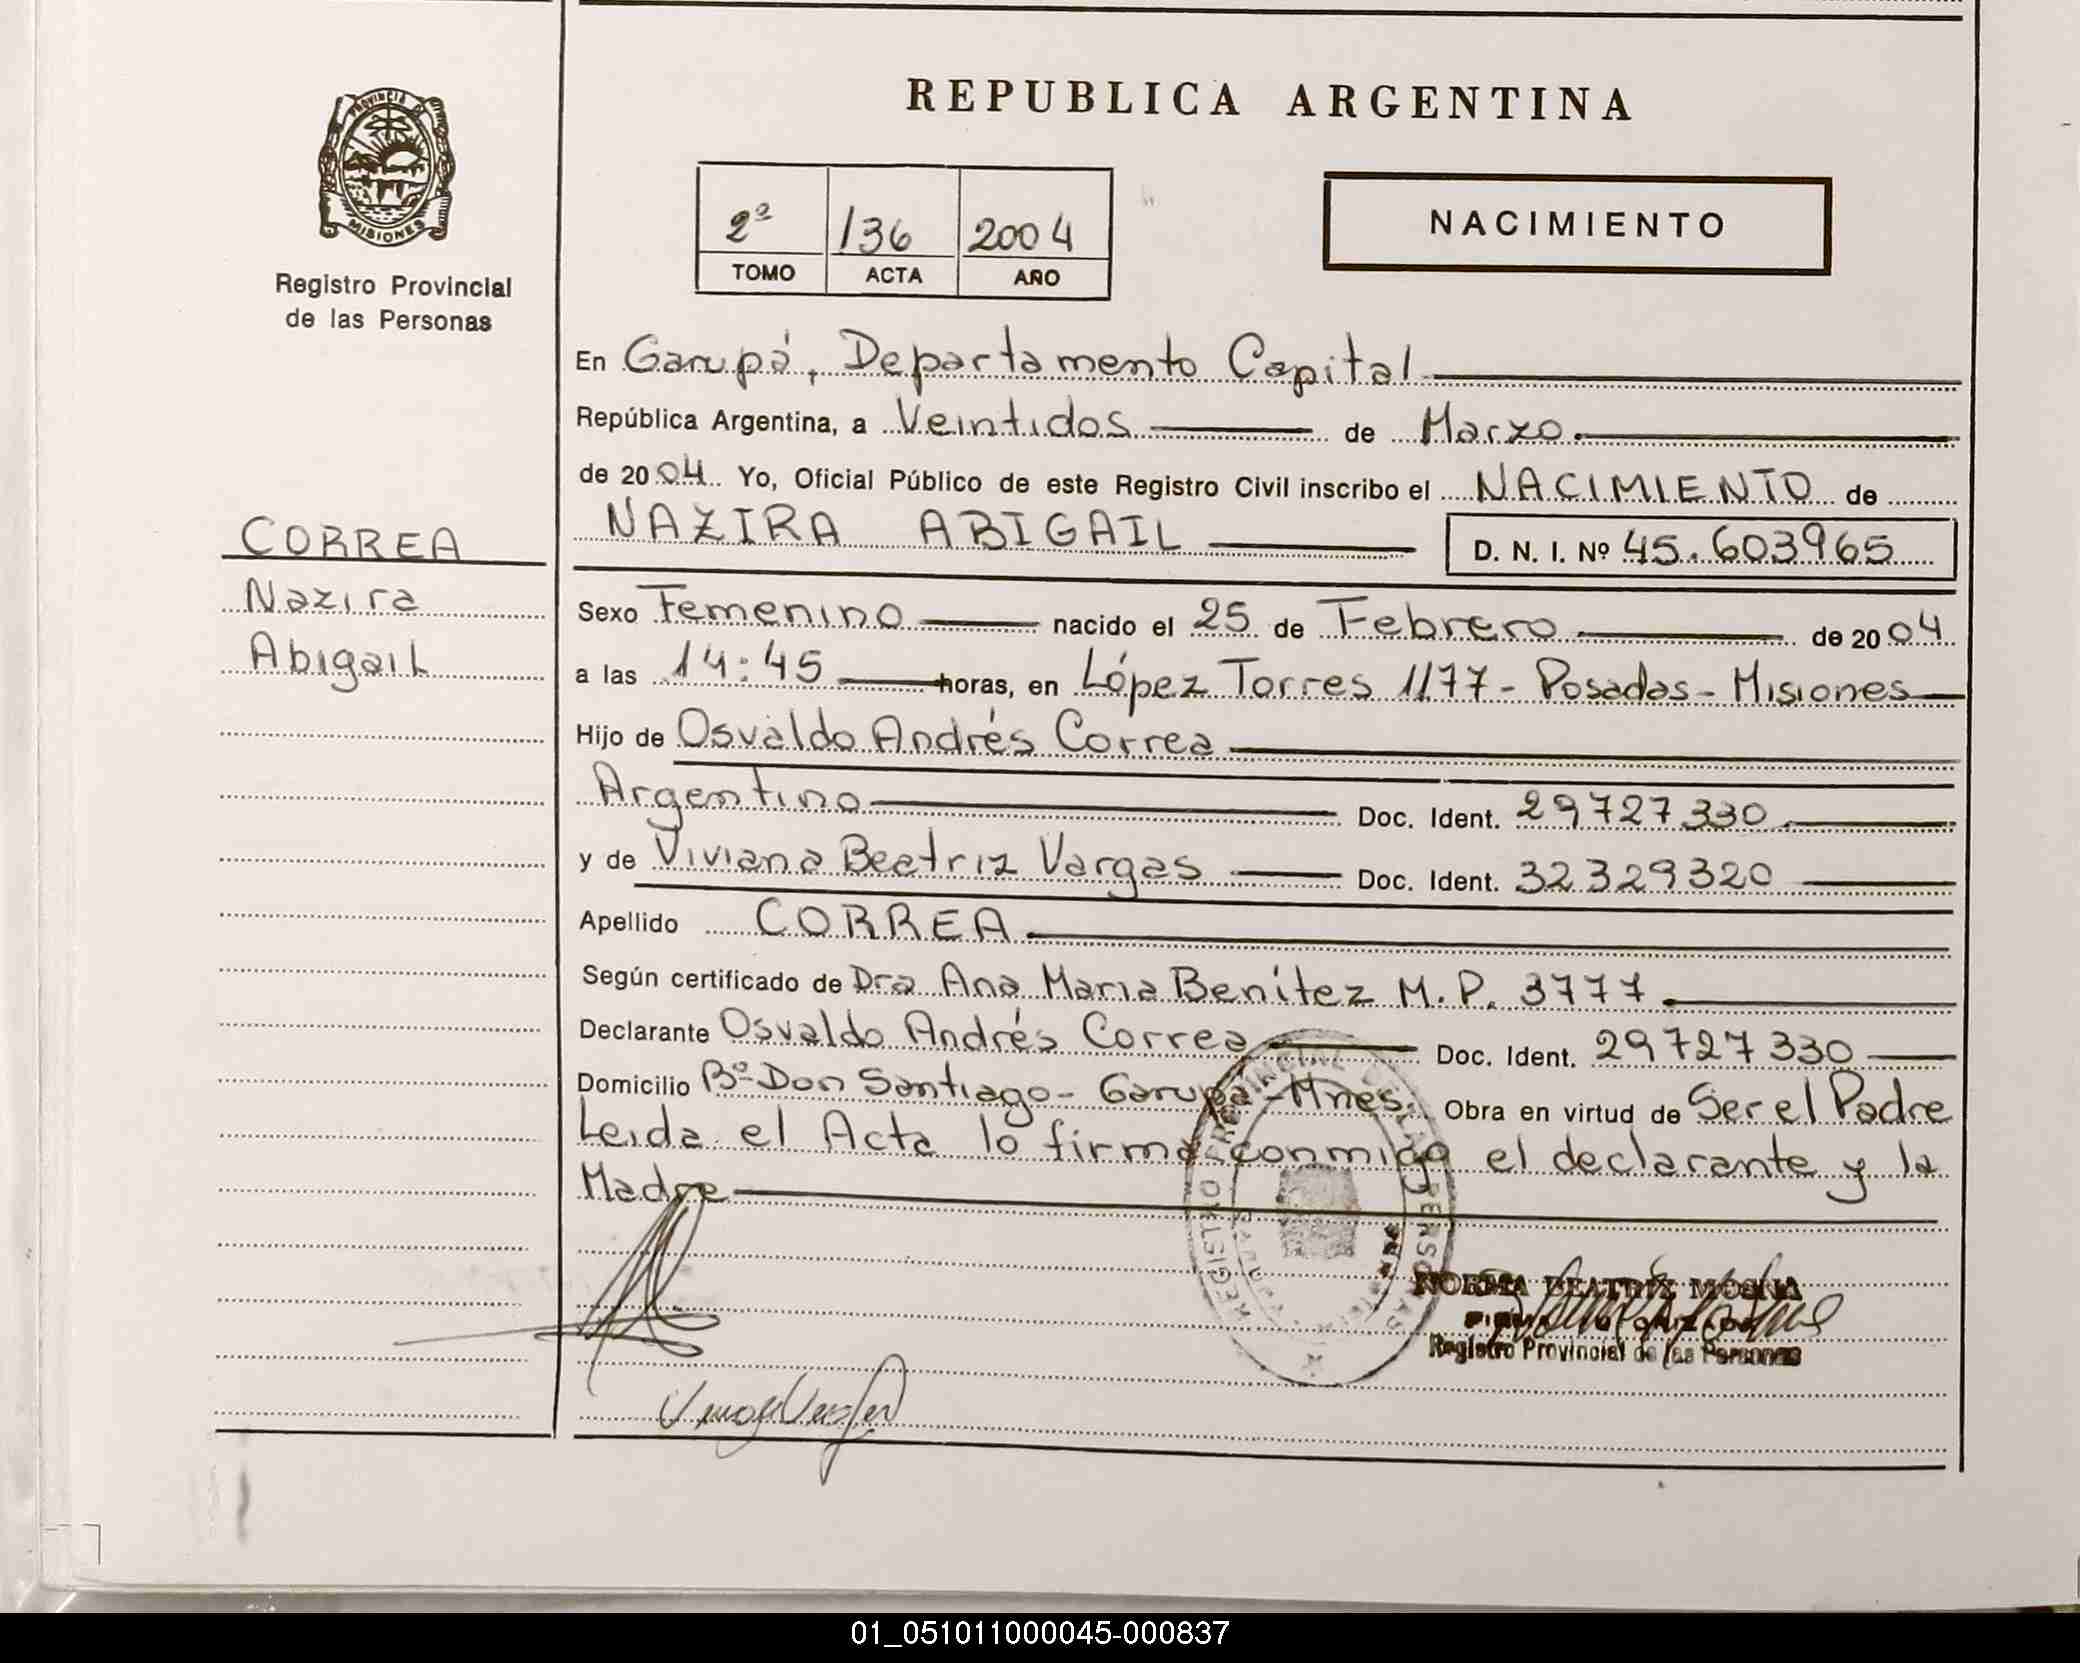 REPUBLICA ARGENTINA
PROVINCIA DE
MISIONES
Registro Provincial
de las Personas
2º 136 2004
TOMO ACTA AÑO
NACIMIENTO
En Garupá, Departamento Capital
República Argentina, a Veintidos de Marzo
de 2004 Yo, Oficial Público de este Registro Civil inscribo el NACIMIENTO de
NAZIRA ABIGAIL D. N. I. Nº 45.603965
CORREA
Nazira
Abigail
Sexo Femenino nacido el 25 de Febrero de 2004
a las 14:45 horas, en López Torres 1177 - Posadas - Misiones
Hijo de Osvaldo Andrés Correa
Argentino Doc. Ident. 29727330
y de Viviana Beatriz Vargas Doc. Ident. 32329320
Apellido CORREA
Según certificado de Dra Ana Maria Benítez M.P. 3777
Declarante Osvaldo Andrés Correa Doc. Ident. 29727330
Domicilio Bº Don Santiago - Garupá - Mnes. Obra en virtud de Ser el Padre
Leida el Acta lo firma conmigo el declarante y la
Madre
REGISTRO PROVINCIAL DE LAS PERSONAS
NORMA BEATRIZ
Registro Provincial de las Personas
01_051011000045-000837